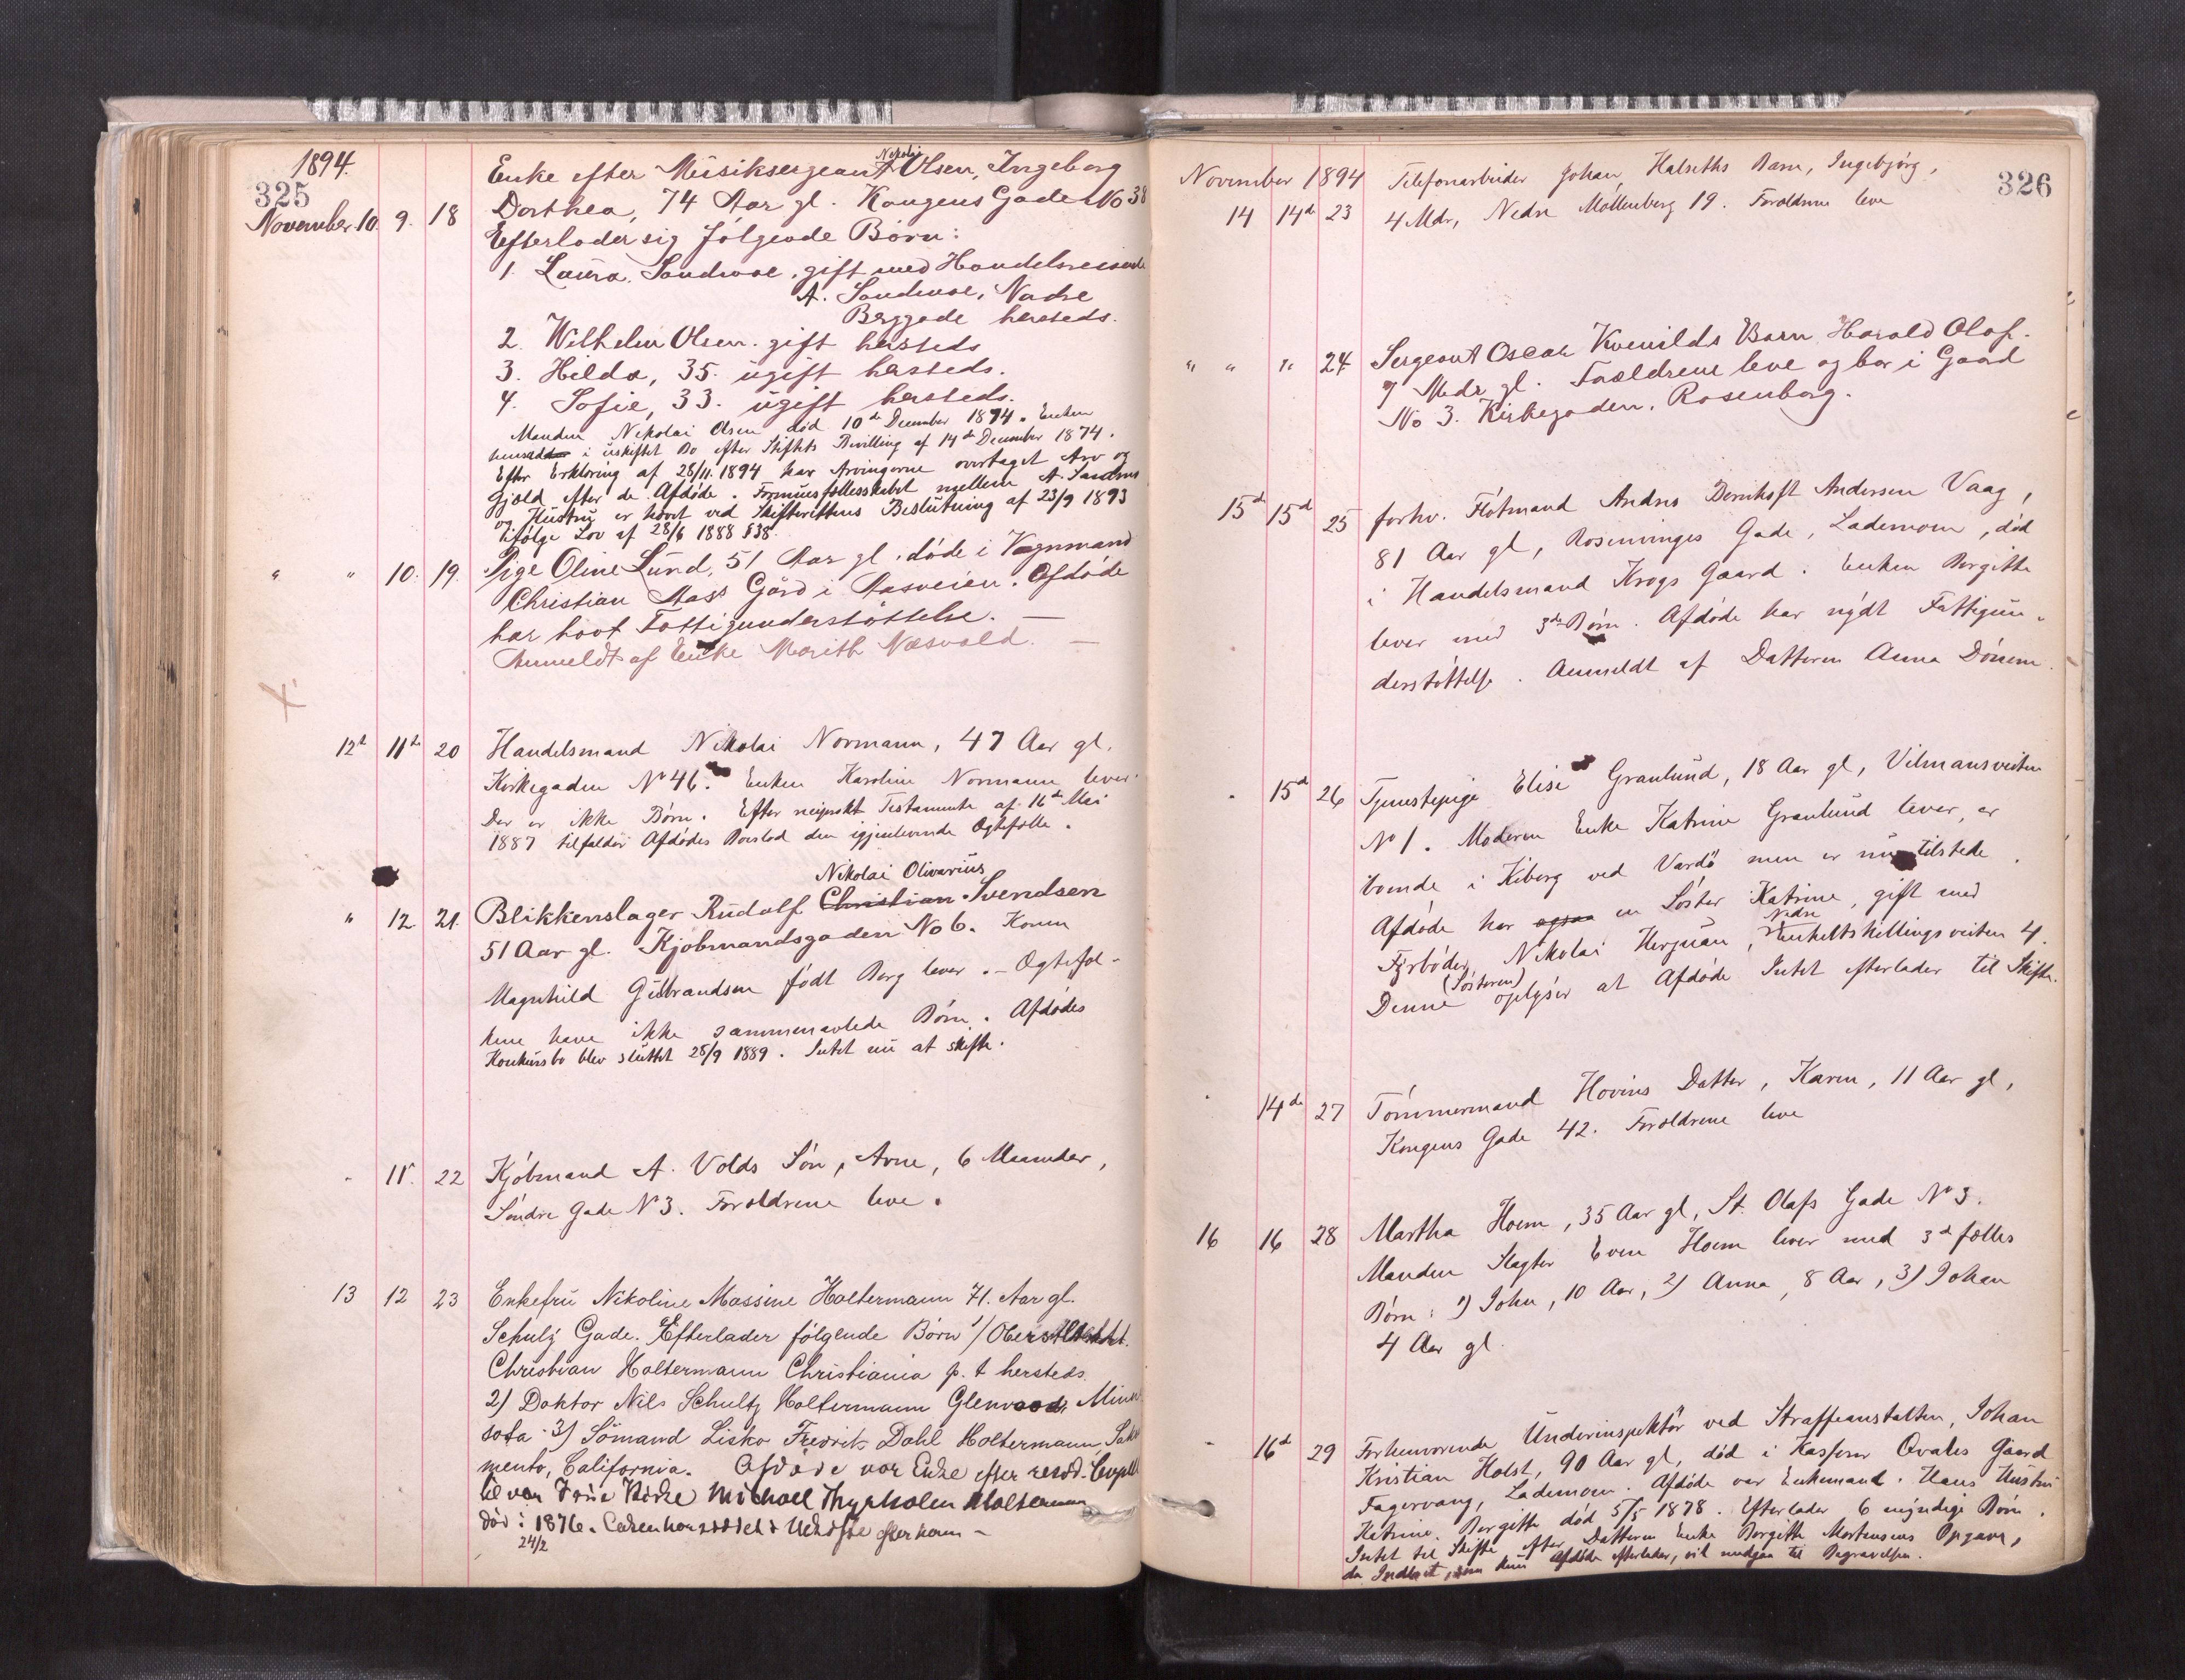 1894.
325
November 10. 9. 18 Enke efter Musiksergeant Nikolai Olsen, Ingeborg
Dorthea, 74 Aar gl. Kongens Gade No 38
Efterlader sig følgende Børn:
1. Laura Sandvoe, gift med Handelsreisende
A. Sandvoe, Nedre
Baggade hersteds.
2. Wilhelm Olsen. gift hersteds
3. Hilda, 35. ugift hersteds.
4. Sofie, 33. ugift hersteds.
Manden Nikolai Olsen død 10de December 1874. Enken
hensad i uskiftet Bo efter Stiftets Bevilling af 14de December 1874.
Efter Erklæring af 28/11. 1894 har Arvingerne overtaget Arv og
Gjæld efter de Afdøde. Formuesfællesskabet mellem A. Sandvoe
og Hustru er hævet ved Skifterettens Beslutning af 23/9 1893
ifølge Lov af 28/6 1888 § 38.
" " 10. 19. Pige Oline Lund, 51 Aar gl. døde i Vognmand
Christian Aass Gård i Aasveien. Afdøde
har havt Fattigunderstøttelse. —
Anmeldt af Enke Marith Næsvold. —
X
12te 11te 20 Handelsmand Nikolai Normann, 47 Aar gl.
Kirkegaden No 46. Enken Karoline Normann lever.
Der er ikke Børn. Efter Testamente af 16de Mai
1887 tilfalder Afdødes Boeslod den igjenlevende Ægtefælle.
Nikolai Olivarius
" 12 21. Blikkenslager Rudolf Christian Svendsen
51 Aar gl. Kjøbmandsgaden No 6. Konen
Magnhild Gulbrandsen født Berg lever. – Ægtefol-
kene have ikke sammenavlede Børn. Afdødes
Konkursbo blev sluttet 28/9 1889. Intet nu at skifte.
11. 22 Kjøbmand A. Volds Søn, Arne, 6 Maaneder,
Søndre Gade No 3. Forældrene leve.
13 12 23 Enkefru Nikoline Massine Holtermann 71. Aar gl.
Schulz Gade. Efterlader følgende Børn 1/
Christian Holtermann Christiania p. t hersteds.
2) Doktor Nils Schultz Holtermann Glenwood, Minne
sota 3) Sömand Fredrik Dahl Holtermann, Sakra
mento, California. Afdøde var Enke efter
til Vor Frue Kirke Michael Holtermann
død i 1876. Enken har siddet i Uskifte efter ham –
24/2
326
November 1894 Telefonarbeider Johan Halseths Barn, Ingebjörg,
14 14de 23 4 Mdr, Nedre Møllenberg 19. Forældrene leve
" " " 24 Sergeant Oscar Kvenilds Barn Harald Olaf.
7 Mdr gl. Forældrene leve og bor i Gaard
No 3. Kirkegaden. Rosenborg.
15de 15de 25 forhv. Fløtmand Andres Bernhoft Andersen Vaag,
81 Aar gl, Rosenvinges Gade, Lademoen, død
i Handelsmand Krogs Gaard. Enken Bergitte
lever med 3de Børn. Afdøde har nydt Fattigun-
derstøttelse. Anmeldt af Datteren Anna Dønem
15de 26 Tjenestepige Elise Granlund, 18 Aar gl, Vilmansveiten
No 1. Moderen Enke Katrine Granlund lever, er
boende i Kiberg ved Vardø men er nu tilstede.
Afdøde har ogsaa en Søster Katrine, gift med
Fyrbøder Nikolai Hergnan, Nedre Enkeltskillingsveiten 4.
Denne (Søsteren) oplyser at Afdøde Intet efterlader til Skifte.
14de 27 Tømmermand Hovins Datter, Karen, 11 Aar gl,
Kongens Gade 42. Forældrene leve
16 16 28 Martha Hoem, 35 Aar gl, St. Olafs Gade No 3.
Manden Slagter Even Hoem lever med 3de fælles
Børn: 1) John, 10 Aar, 2) Anna, 8 Aar, 3) Johan
4 Aar gl.
16de 29 Forhenværende Underinspektør ved Straffeanstalten, Johan
Kristian Holst, 90 Aar gl, død i Kasserer Qvales Gaard
Fagervang, Lademoen. Afdøde var Enkemand. Hans Hustru
Katrine Bergitte død 5/5 1878. Efterlader 6 myndige Børn.
Intet til Skifte efter Datteren Enke Bergitte Mortensens Opgave,
da Indboet, som kun Afdøde efterlader, vil medgaa til Begravelsen.